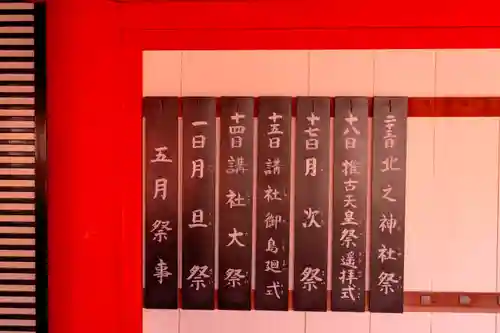 五月祭事
一日月旦祭
十四日講社大祭
十五日講社御島廻式
十七日月次祭
十八日推古天皇祭遥拝式
二十三日北之神社祭